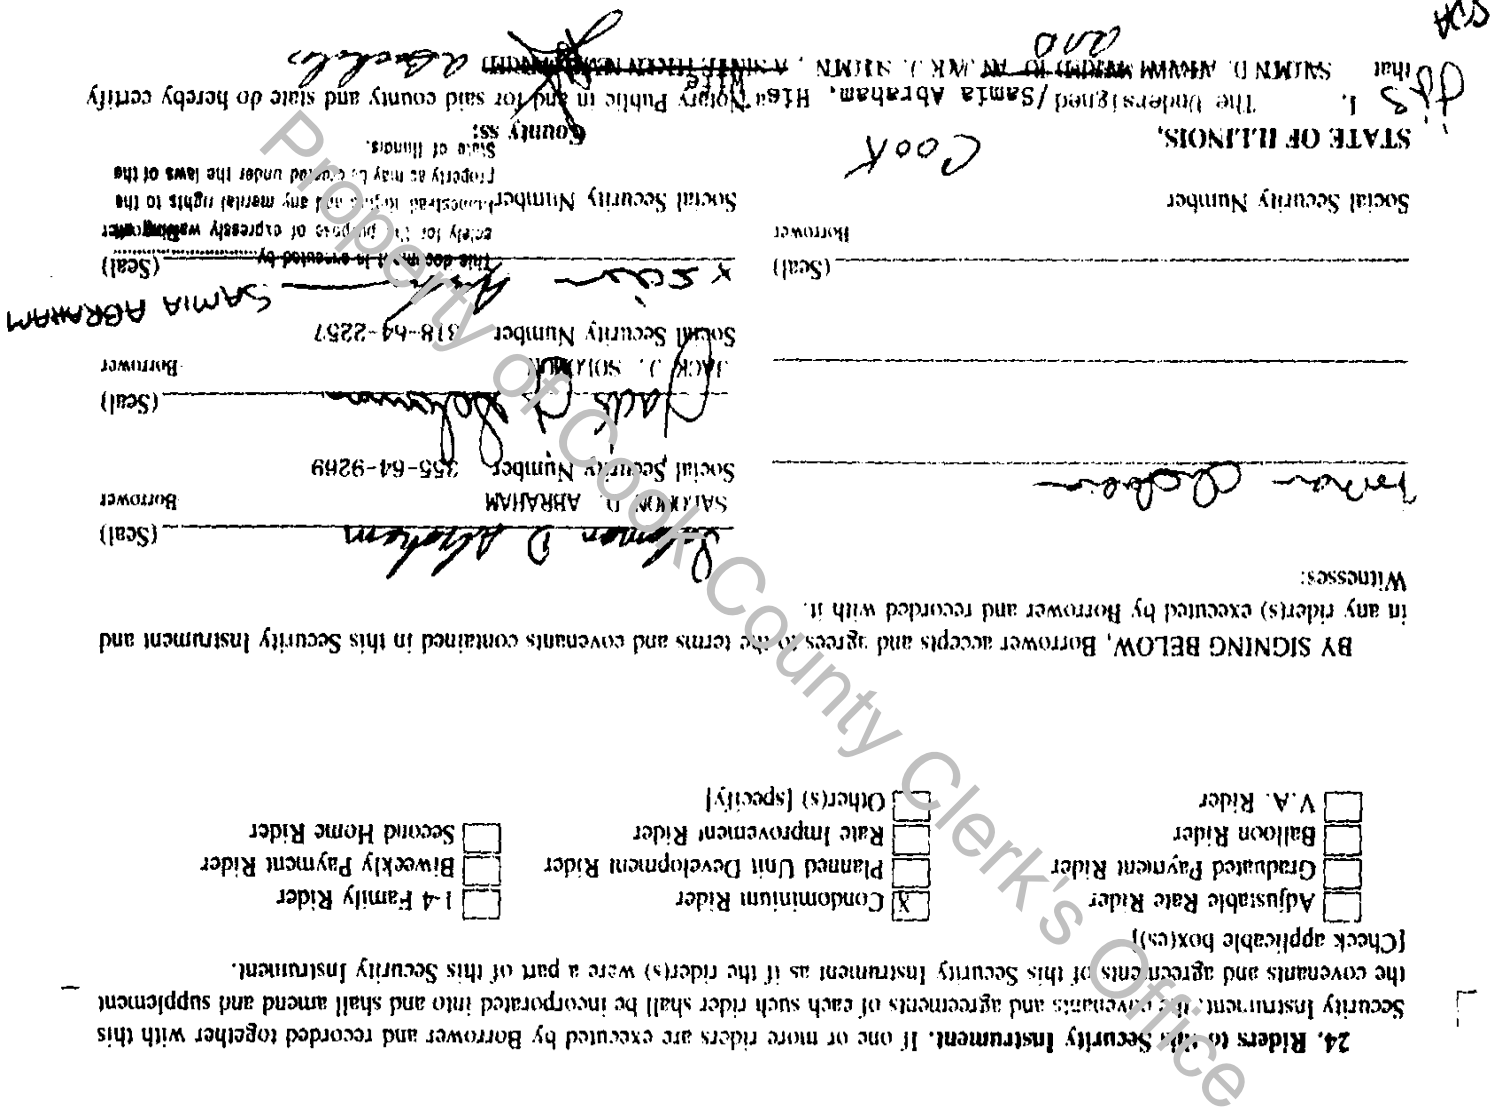 24. Riders to this Security Instrument. If one or more riders are executed by Borrower and recorded together with this
Security Instrument, the covenants and agreements of each such rider shall be incorporated into and shall amend and supplement
the covenants and agreements of this Security Instrument as if the rider(s) were a part of this Security Instrument.
[Check applicable box(es)]
Adjustable Rate Rider
X Condominium Rider
1-4 Family Rider
Graduated Payment Rider
Planned Unit Development Rider
Biweekly Payment Rider
Balloon Rider
Rate Improvement Rider
Second Home Rider
V.A. Rider
Other(s) [specify]
BY SIGNING BELOW, Borrower accepts and agrees to the terms and covenants contained in this Security Instrument and
in any rider(s) executed by Borrower and recorded with it.
Witnesses:
Solomon D Abraham (Seal)
SALOMON D. ABRAHAM Borrower
Social Security Number 355-64-9269
Jack J Solomon (Seal)
JACK J. SOLOMON Borrower
Social Security Number 318-64-2257
SAMIA ABRAHAM
X (Seal)
(Seal)
Borrower
This document is executed by
solely for the purpose of expressly waiving
Homestead rights and any marital rights to the
Property as may be created under the laws of the
State of Illinois.
Social Security Number
Social Security Number
STATE OF ILLINOIS, COOK County ss:
I, The Undersigned/Samia Abraham, His Wife a Notary Public in and for said county and state do hereby certify
that AND JACK J. a Bachelor
JJS
SDA
Property of Cook County Clerk's Office